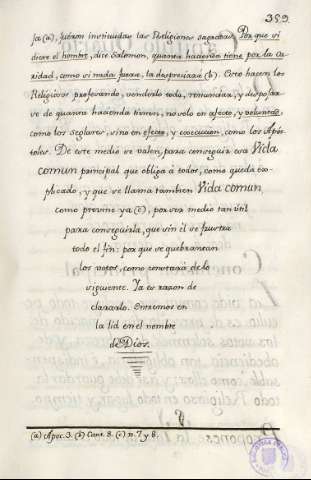 359.
sa (a), fueron instituidas las Religiones sagradas. Por que si
diere el hombre, dice Salomon, quanta hacienda tiene por la Ca-
ridad, como si nada fuera, la despreciará (b). Esto hacen los
Religiosos profesando, venderlo todo, renunciar, y despojar-
se de quanta hacienda tienen, no solo en afecto, y voluntad,
como los seglares, sino en efecto, y execucion, como los Após-
toles. De este medio se valen, para conseguir esa Vida
comun principal que obliga á todos, como queda ex-
plicado, y que se llama tambien Vida comun,
como previne ya (c), por ser medio tan útil
para conseguirla, que sin él se frustra
todo el fin: por que se quebrantan
los votos, como constará de lo
siguiente. Ya es razon de
clararlo. Entremos en
la lid en el nombre
de Dios.
(a) Apoc. 3. (b) Cant. 8. (c) n. 7. y 8.